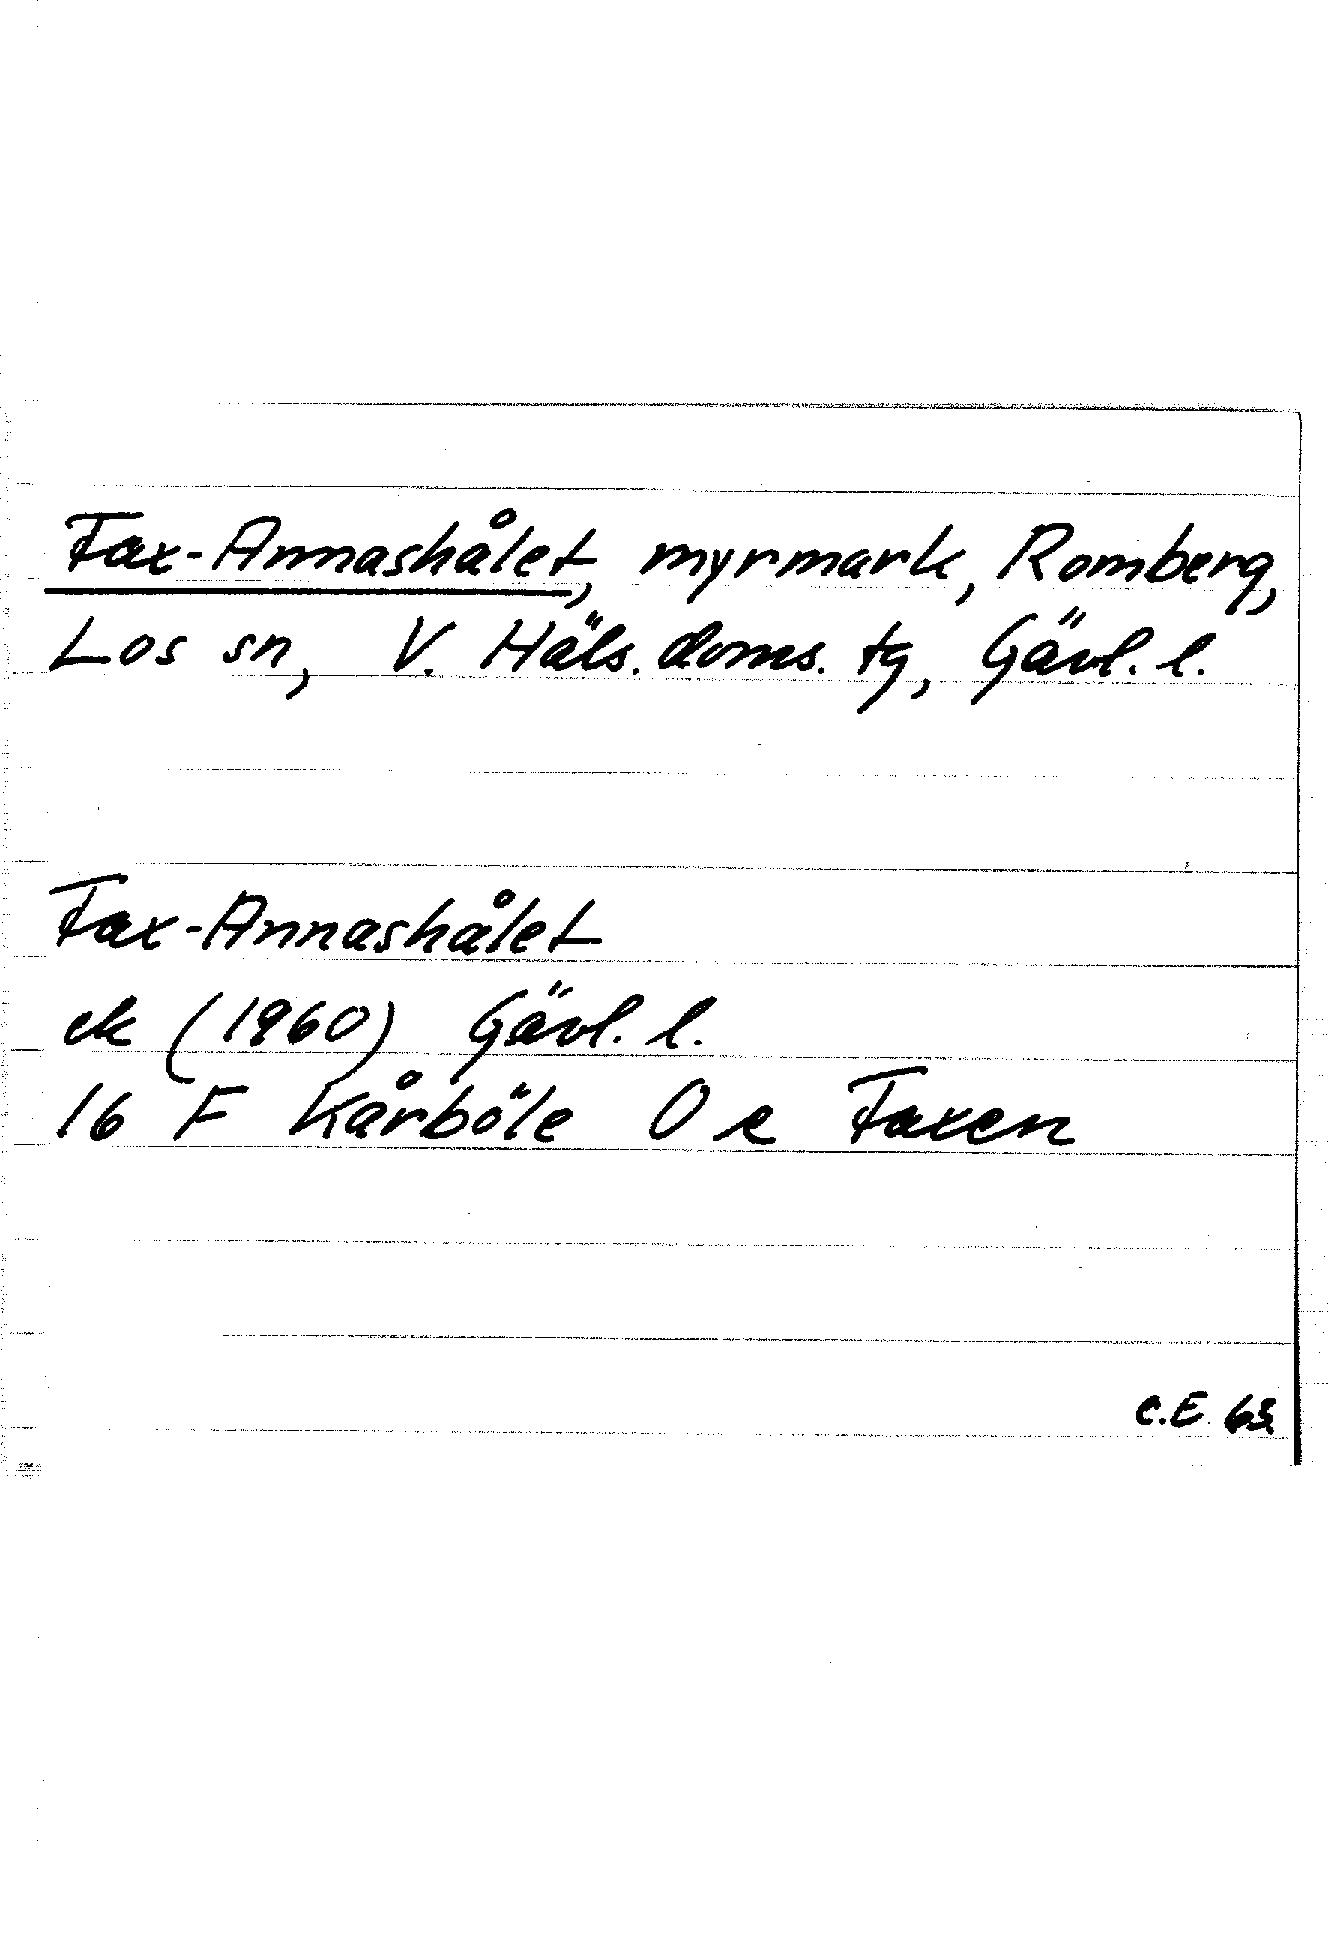 Fax-Annashålet, myrmark, Romberg,
Los sn, V. Häls. doms. tg, Gävl. l.
Fax-Annashålet
ek (1960) Gävl. l.
16 F Kårböle O e Faxen
C.E. 63